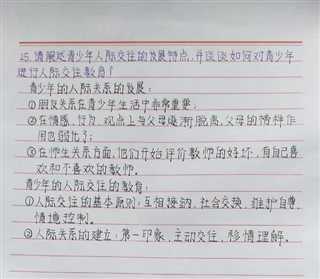 25.请阐述青少年人际交往的发展特点,并谈谈如何对青少年
进行人际交往教育?
青少年的人际关系的发展:
①朋友关系在青少年生活中非常重要;
②在情感、行为、观点上与父母逐渐脱离,父母的榜样作
用也弱化了;
③在师生关系方面,他们开始评价教师的好坏,有自己喜
欢和不喜欢的教师。
青少年的人际交往的教育:
①人际交往的基本原则:互相接纳,社会交换,维护自尊,
情境控制。
②人际关系的建立:第一印象,主动交往,移情理解。